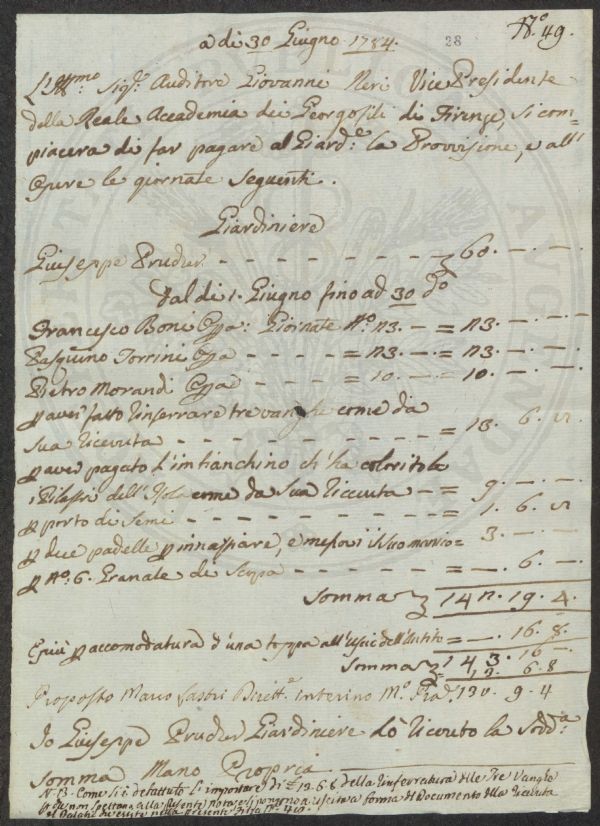 N.° 49.
a di 30 Giugno 1784.
28
L'Ill.mo Sig.r Auditore Giovanni Neri Vice Presidente
della Reale Accademia dei Georgofili di Firenze, si com=
piacerà di far pagare al Giard.e la Provisione, e all'
Opere le giornate seguenti.
Giardiniere
Giuseppe Prudur - - - - - - - 60. - . -
Dal di 1. Giugno fino ad 30 d.o
Francesco Boni Opa: Giornate N.o 23. - = 23. - . -
Pasquino Torrini Opa - - - - = 23. - = 23. - . -
Pietro Morandi Opa - - - - = 10. - = 10. - . -
p aver fatto rinferrare tre vanghe come da
sua ricevuta - - - - - - - = 13. 6. 8
p aver pagato l'imbianchino ch'ha colorito la
i Pilastri dell'Isola come da sua ricevuta - = 9. - . -
p porto di semi - - - - - - - = 1. 6. 8
p due padelle p innaffiare, e messovi il suo manico = 3. - . -
p N.o 6. Granate di Scopa - - - - - = - . 6. -
Somma 142. 19. 4.
E più p accomodatura d'una toppa all'uscio dell' = - . 16. 8.
Somma 143. 16 -
12. 6. 8
Proposto Marco Lastri Dirett.e interino M.o 130. 9. 4
Io Giuseppe Prudur Giardiniere hò ricevuto la Sodd.a
somma Mano Propria
N.B. Come si è detratto l'importare di 12. 6. 8 della rinferratura delle Tre Vanghe
p che non spettano alla presente nota, e si pongono a uscita a forma del Documento della ricevuta
che esiste nella presente Filza N.o